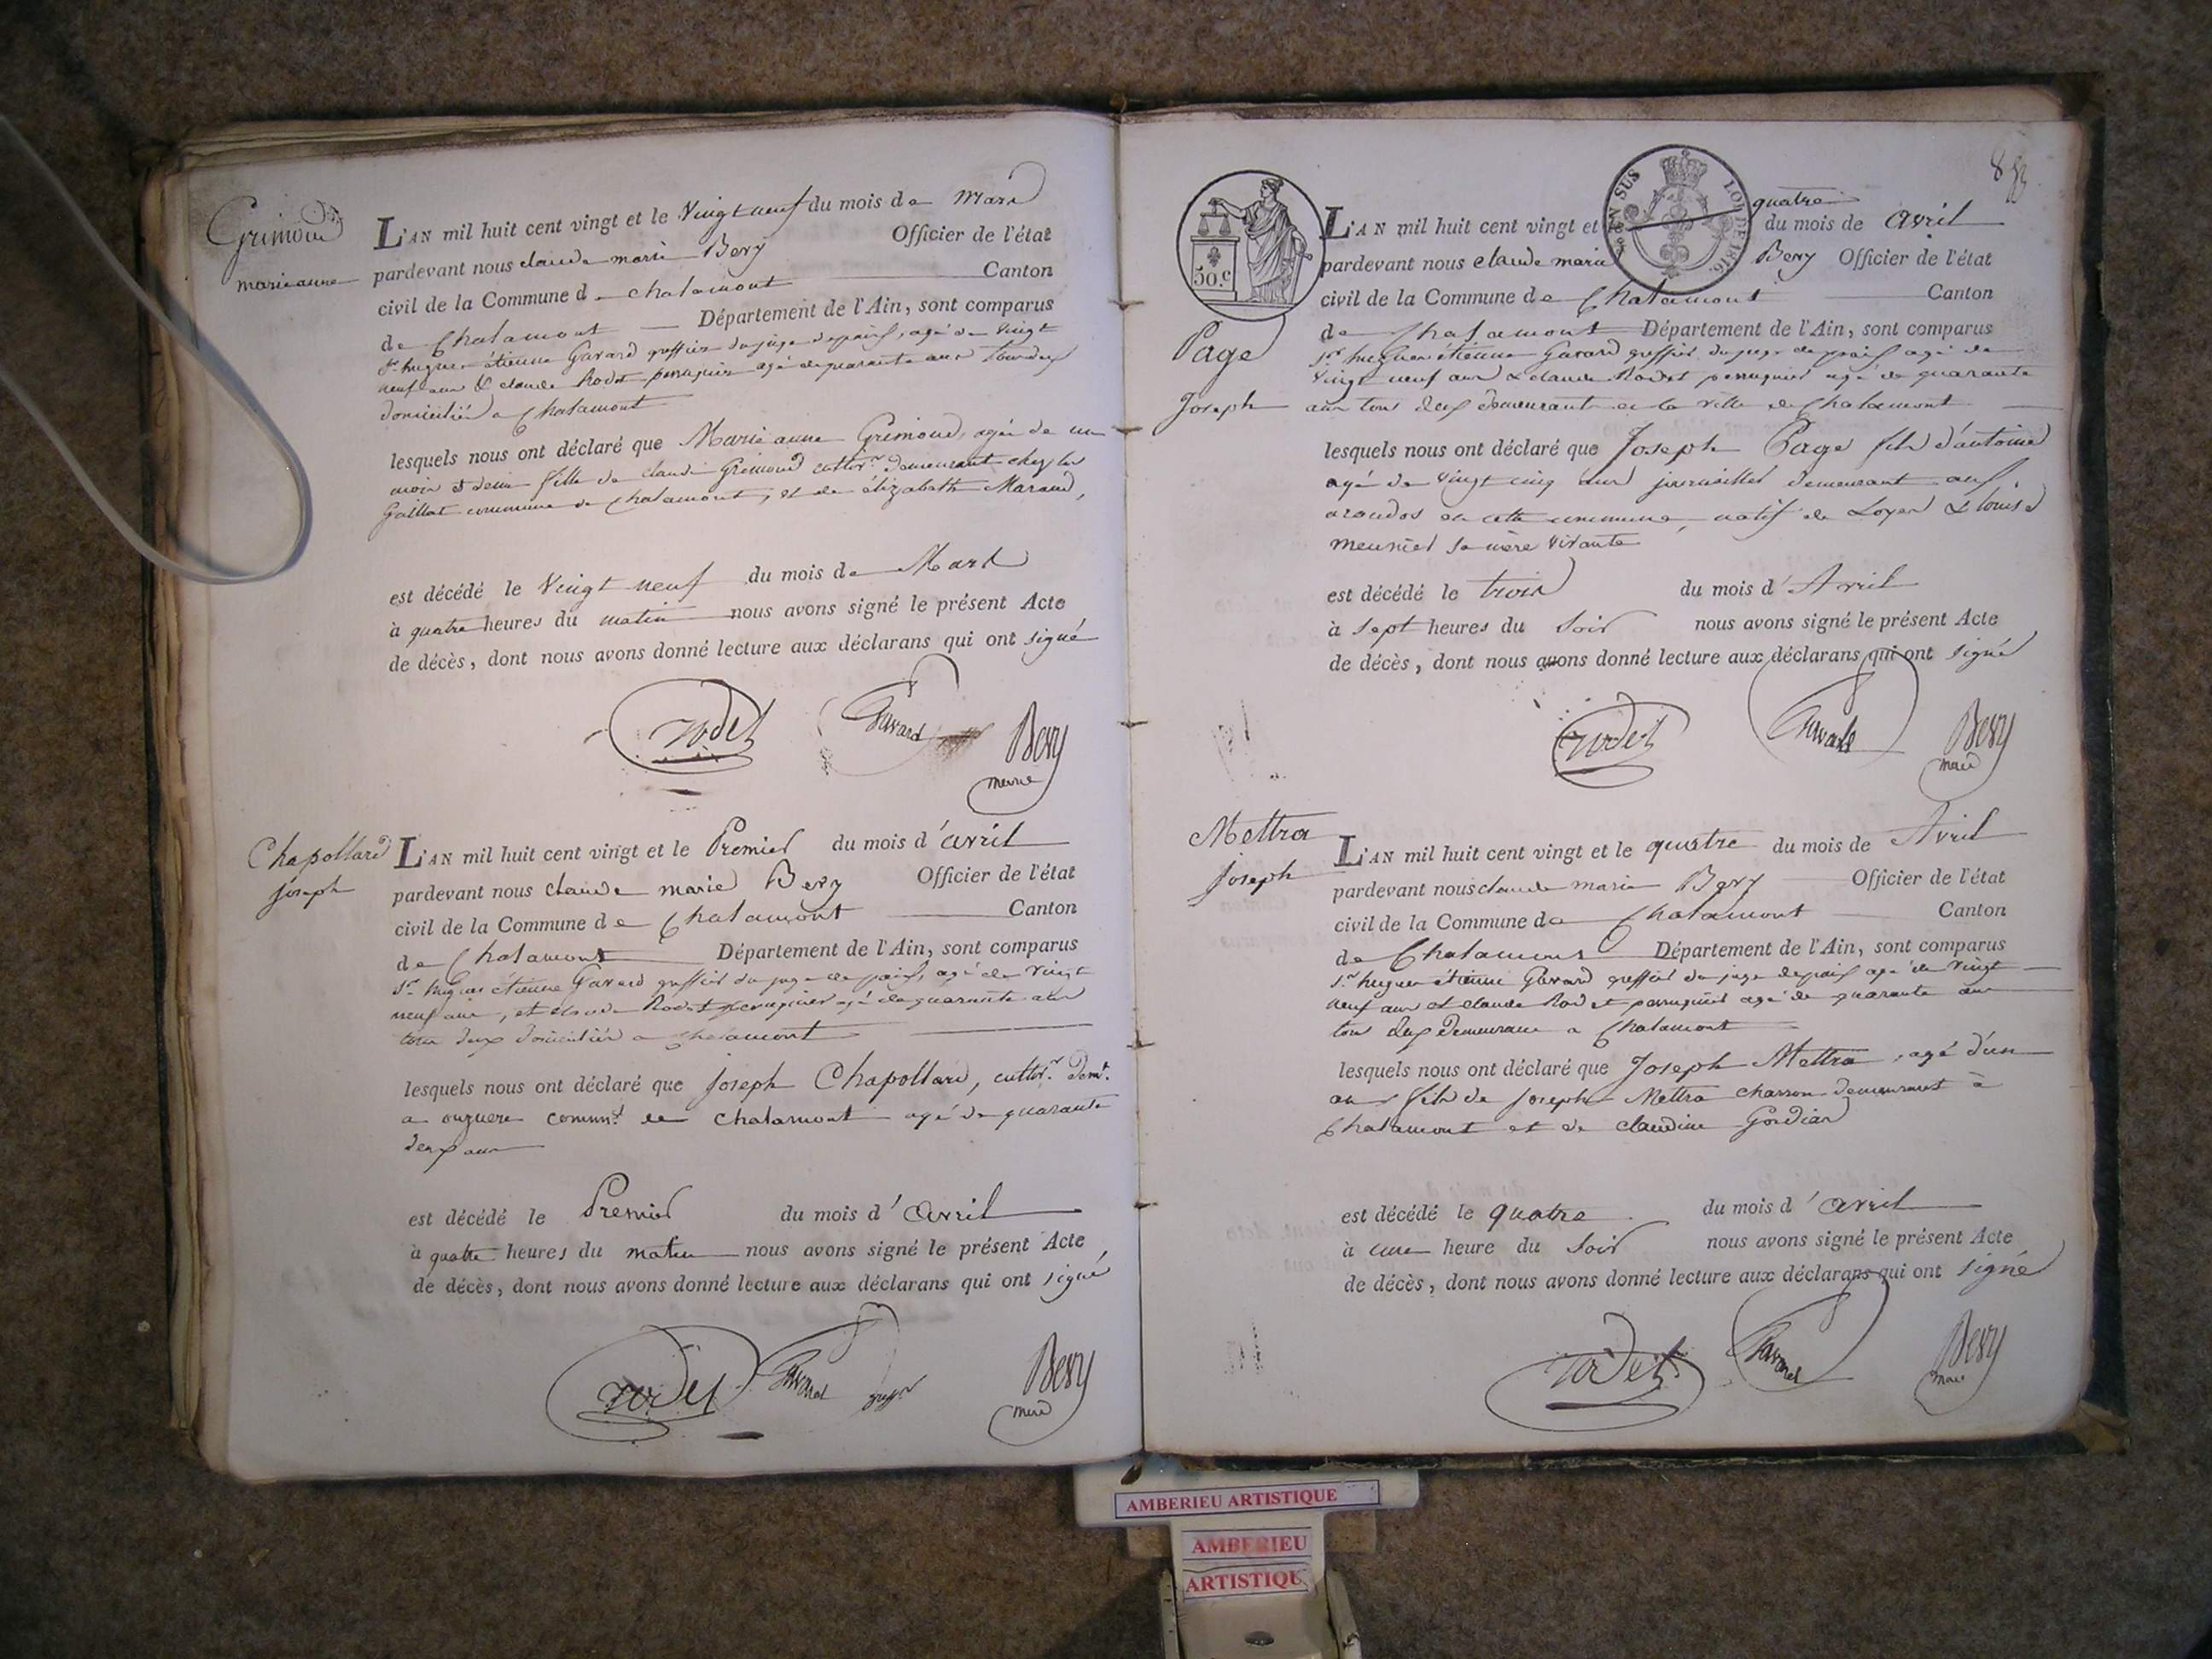 Grimoud
marieanne
L'AN mil huit cent vingt et le Vingt neuf du mois de Mars
pardevant nous claude marie Bery Officier de l'état
civil de la Commune de chalamont Canton
de Chalamont Département de l'Ain, sont comparus
Sr. hugues étienne Gavard greffier du juge de paix, agé de vingt
neuf ans & claude Rodet perruquier agé de quarante ans tous deux
domiciliés a Chalamont
lesquels nous ont déclaré que Marie anne Grimoud, agée de un
mois et demi fille de claude Grimoud cultivr. demeurant chez les
Gaillat commune de Chalamont, et de élizabeth Maraud,
est décédé le Vingt neuf du mois de Mars
à quatre heures du matin nous avons signé le présent Acte
de décès, dont nous avons donné lecture aux déclarans qui ont signé
rodet Gavard Bery
maire
Chapollard
joseph
L'AN mil huit cent vingt et le Premier du mois d'avril
pardevant nous claude marie Bery Officier de l'état
civil de la Commune de Chalamont Canton
de Chalamont Département de l'Ain, sont comparus
Sr. hugues étienne Gavard greffier du juge de paix, agé de vingt
neuf ans, et claude Rodet perruquier agé de quarante ans
tous deux domiciliés a chalamont
lesquels nous ont déclaré que joseph Chapollard, cultivr. demt.
a commt. de chalamont agé de quarante
deux ans
est décédé le Premier du mois d'avril
à quatre heures du matin nous avons signé le présent Acte
de décès, dont nous avons donné lecture aux déclarans qui ont signé
rodet Gavard Bery
maire
50.c
EN SUS LOI DE 1816.
Page
Joseph
quatre
L'AN mil huit cent vingt et du mois de avril
pardevant nous claude marie Bery Officier de l'état
civil de la Commune de Chalamont Canton
de Chalamont Département de l'Ain, sont comparus
Sr. hugues étienne Gavard greffier du juge de paix agé de
vingt neuf ans & claude Rodet perruquier agé de quarante
ans tous deux demeurant en la ville de Chalamont
lesquels nous ont déclaré que Joseph Page fils d'antoine
agé de vingt cinq ans demeurant aux
en cette commune, natif de Loyes & louise
meunier sa mère vivante
est décédé le trois du mois d'Avril
à sept heures du soir nous avons signé le présent Acte
de décès, dont nous avons donné lecture aux déclarans qui ont signé
rodet Gavard Bery
maire
Mettra
joseph
L'AN mil huit cent vingt et le quatre du mois de Avril
pardevant nous claude marie Bery Officier de l'état
civil de la Commune de Chalamont Canton
de Chalamont Département de l'Ain, sont comparus
Sr. hugues étienne Gavard greffier du juge de paix agé de vingt
neuf ans et claude Rodet perruquier agé de quarante ans
tous deux demeurans a Chalamont
lesquels nous ont déclaré que Joseph Mettra, agé d'un
an fils de joseph Mettra charron demeurant à
Chalamont et de claudine Gordian
est décédé le quatre du mois d'avril
à une heure du soir nous avons signé le présent Acte
de décès, dont nous avons donné lecture aux déclarans qui ont signé
rodet Gavard Bery
maire
AMBERIEU ARTISTIQUE
AMBERIEU
ARTISTIQUE